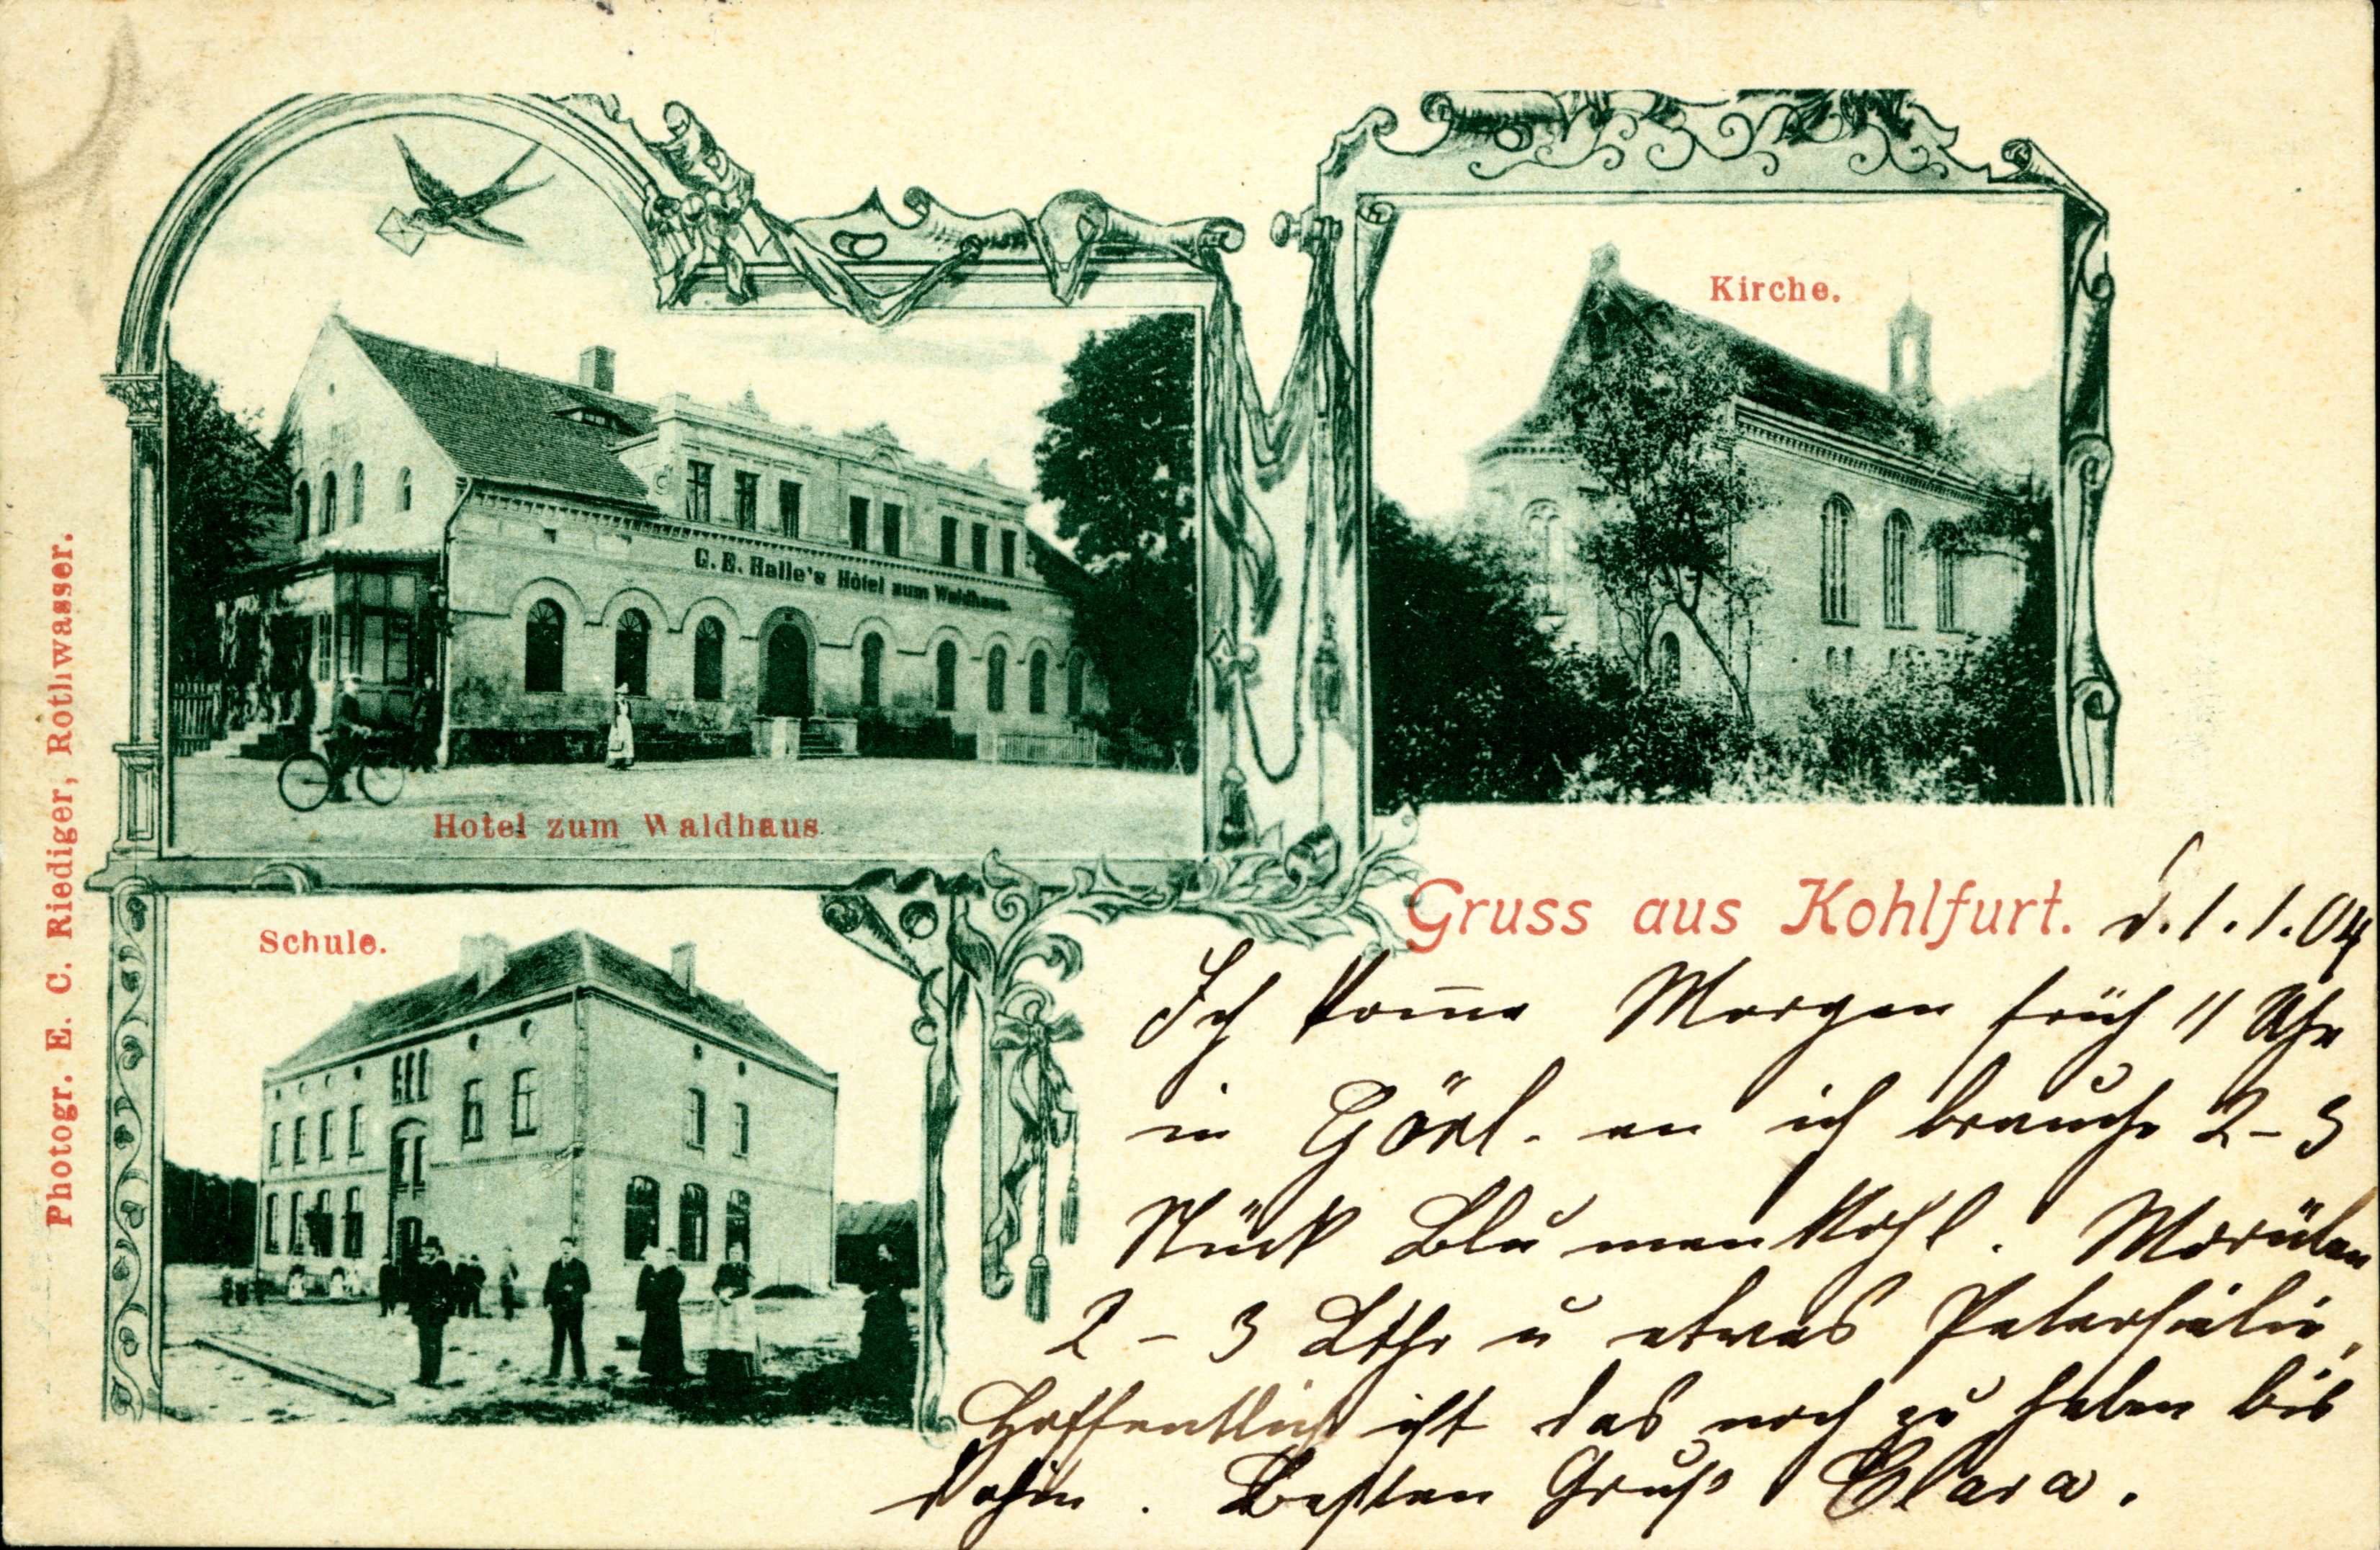 Photogr. E. C. Riediger, Rothwasser.
G. E. Halle's Hôtel zum Waldhaus.
Hotel zum Waldhaus
Kirche.
Schule.
Gruss aus Kohlfurt. d. 1.1.04
Ich kom̅e Morgen früh 11 Uhr
in Görl. an ich brauche 2-3
Stück Blumenkohl. Morcheln
2-3 Lthr u etwas Petersielie,
Hoffentlich ist das noch zu haben bis
dahin. Besten Gruß Clara.